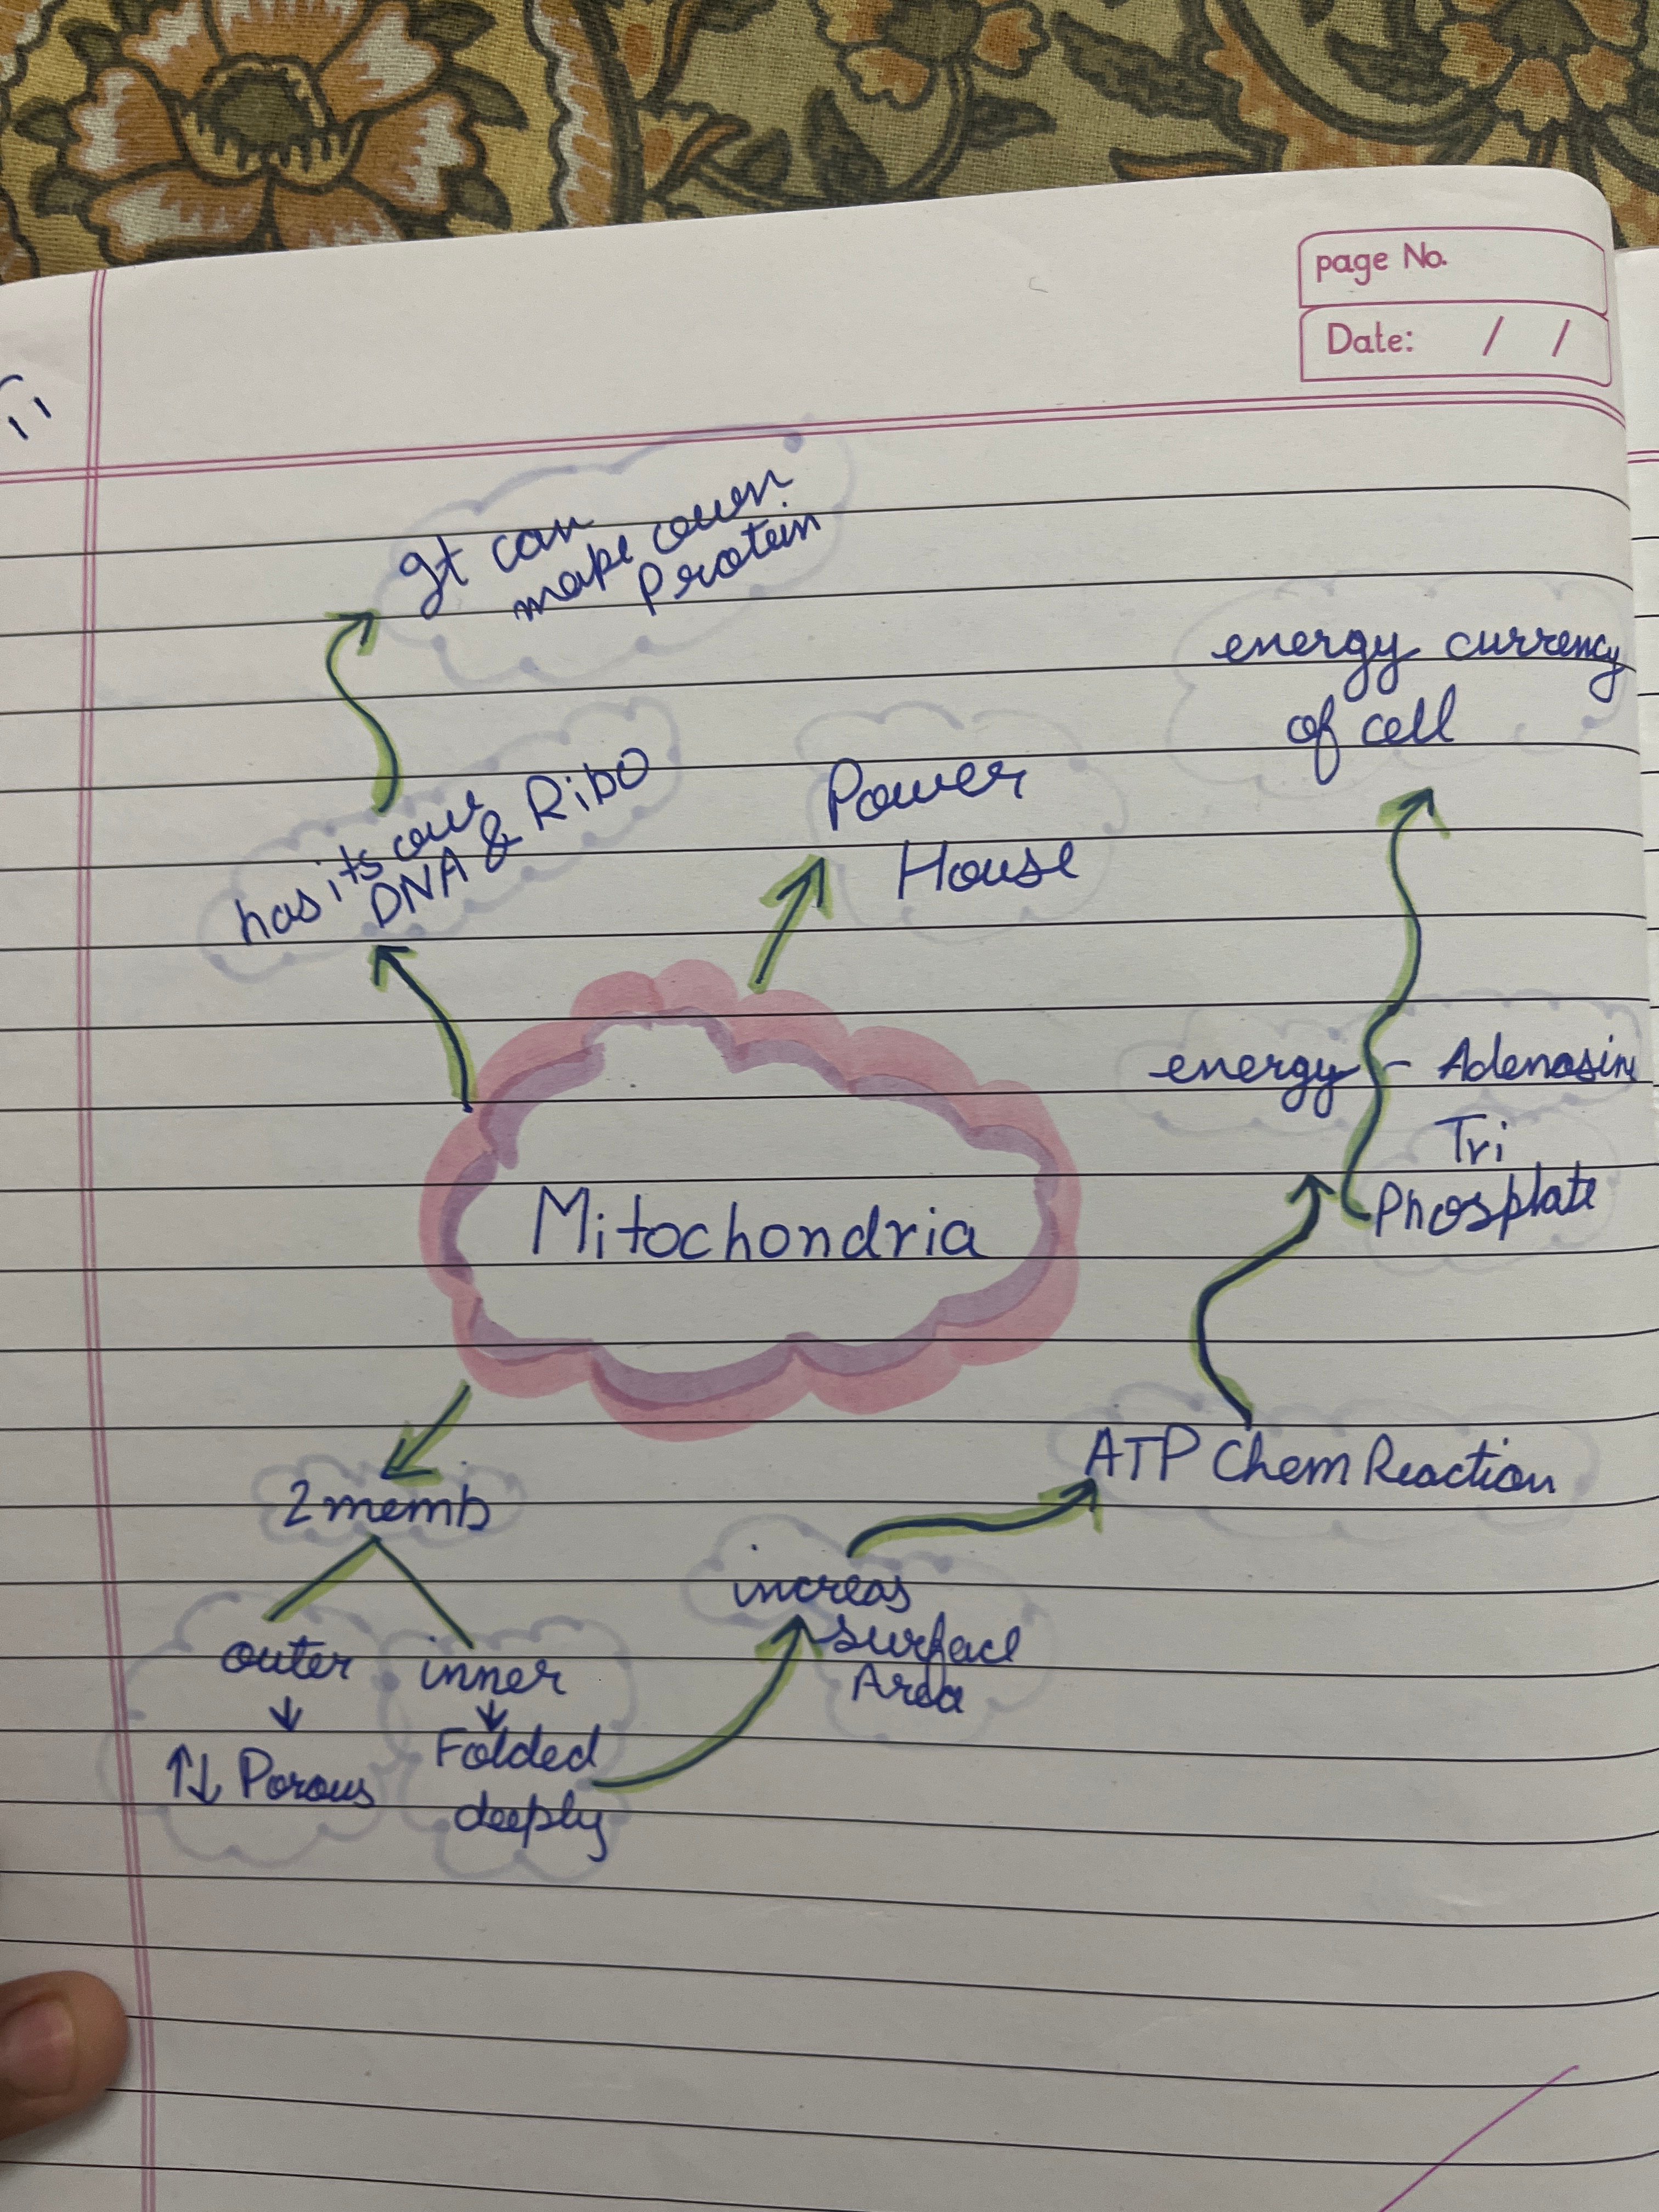 page No.
Date: / /
It can
make own
Protein
has its own
DNA & Ribo
Power
House
energy currency
of cell
energy - Adenosine
Tri
Phosphate
Mitochondria
2 memb
outer
↓
↑↓ Porous
inner
↓
Folded
deeply
increas
surface
Area
ATP Chem Reaction